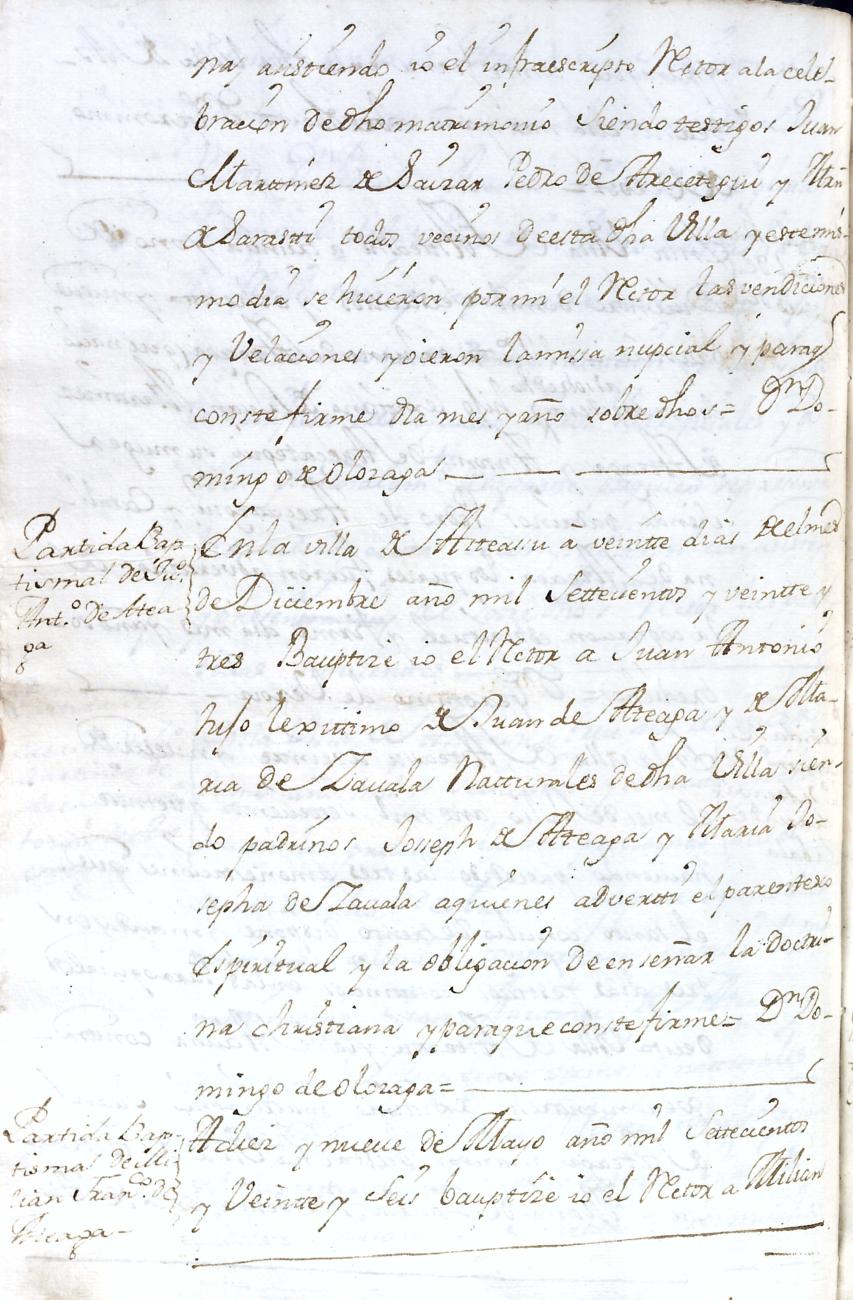 na, asistiendo io el infraescripto Rector a la cele-
bracion de dho matrimonio siendo testigos Juan
Martinez de Pedro de Arecetegui y
todos vecinos de esta dha Villa y este mis-
mo dia se hicieron por mi el Rector las vendiciones
y Velaciones y oieron la missa nupcial y paraq
conste firme dia mes y año sobre dhos = Dn Do-
mingo de Oloraga
Partida Bap
tismal de Juo.
Anto. de Atea
ga
En la villa de Atteassu â veintte dias del mes
de Diciembre año mil Settecientos y veintte y
tres Bauptize io el Rector a Juan Antonio
hijo lexittimo de Juan de Atteaga y de Ma-
ria de Zavala Natturales de dha Villa sien-
do padrinos Joseph de Atteaga y Maria Jo-
sepha de Zavala a quienes advertti el parentexo
Espiritual y la obligacion de enseñar la Doctri-
na christiana y paraque conste firme = Dn Do-
mingo de Oloraga =
Partida Bap
tismal de Mi
lian Franco. de
Atteaga
A diez y nueve de Mayo año mil Settecientos
y Veintte y Seis bauptize io el Rector a Milian